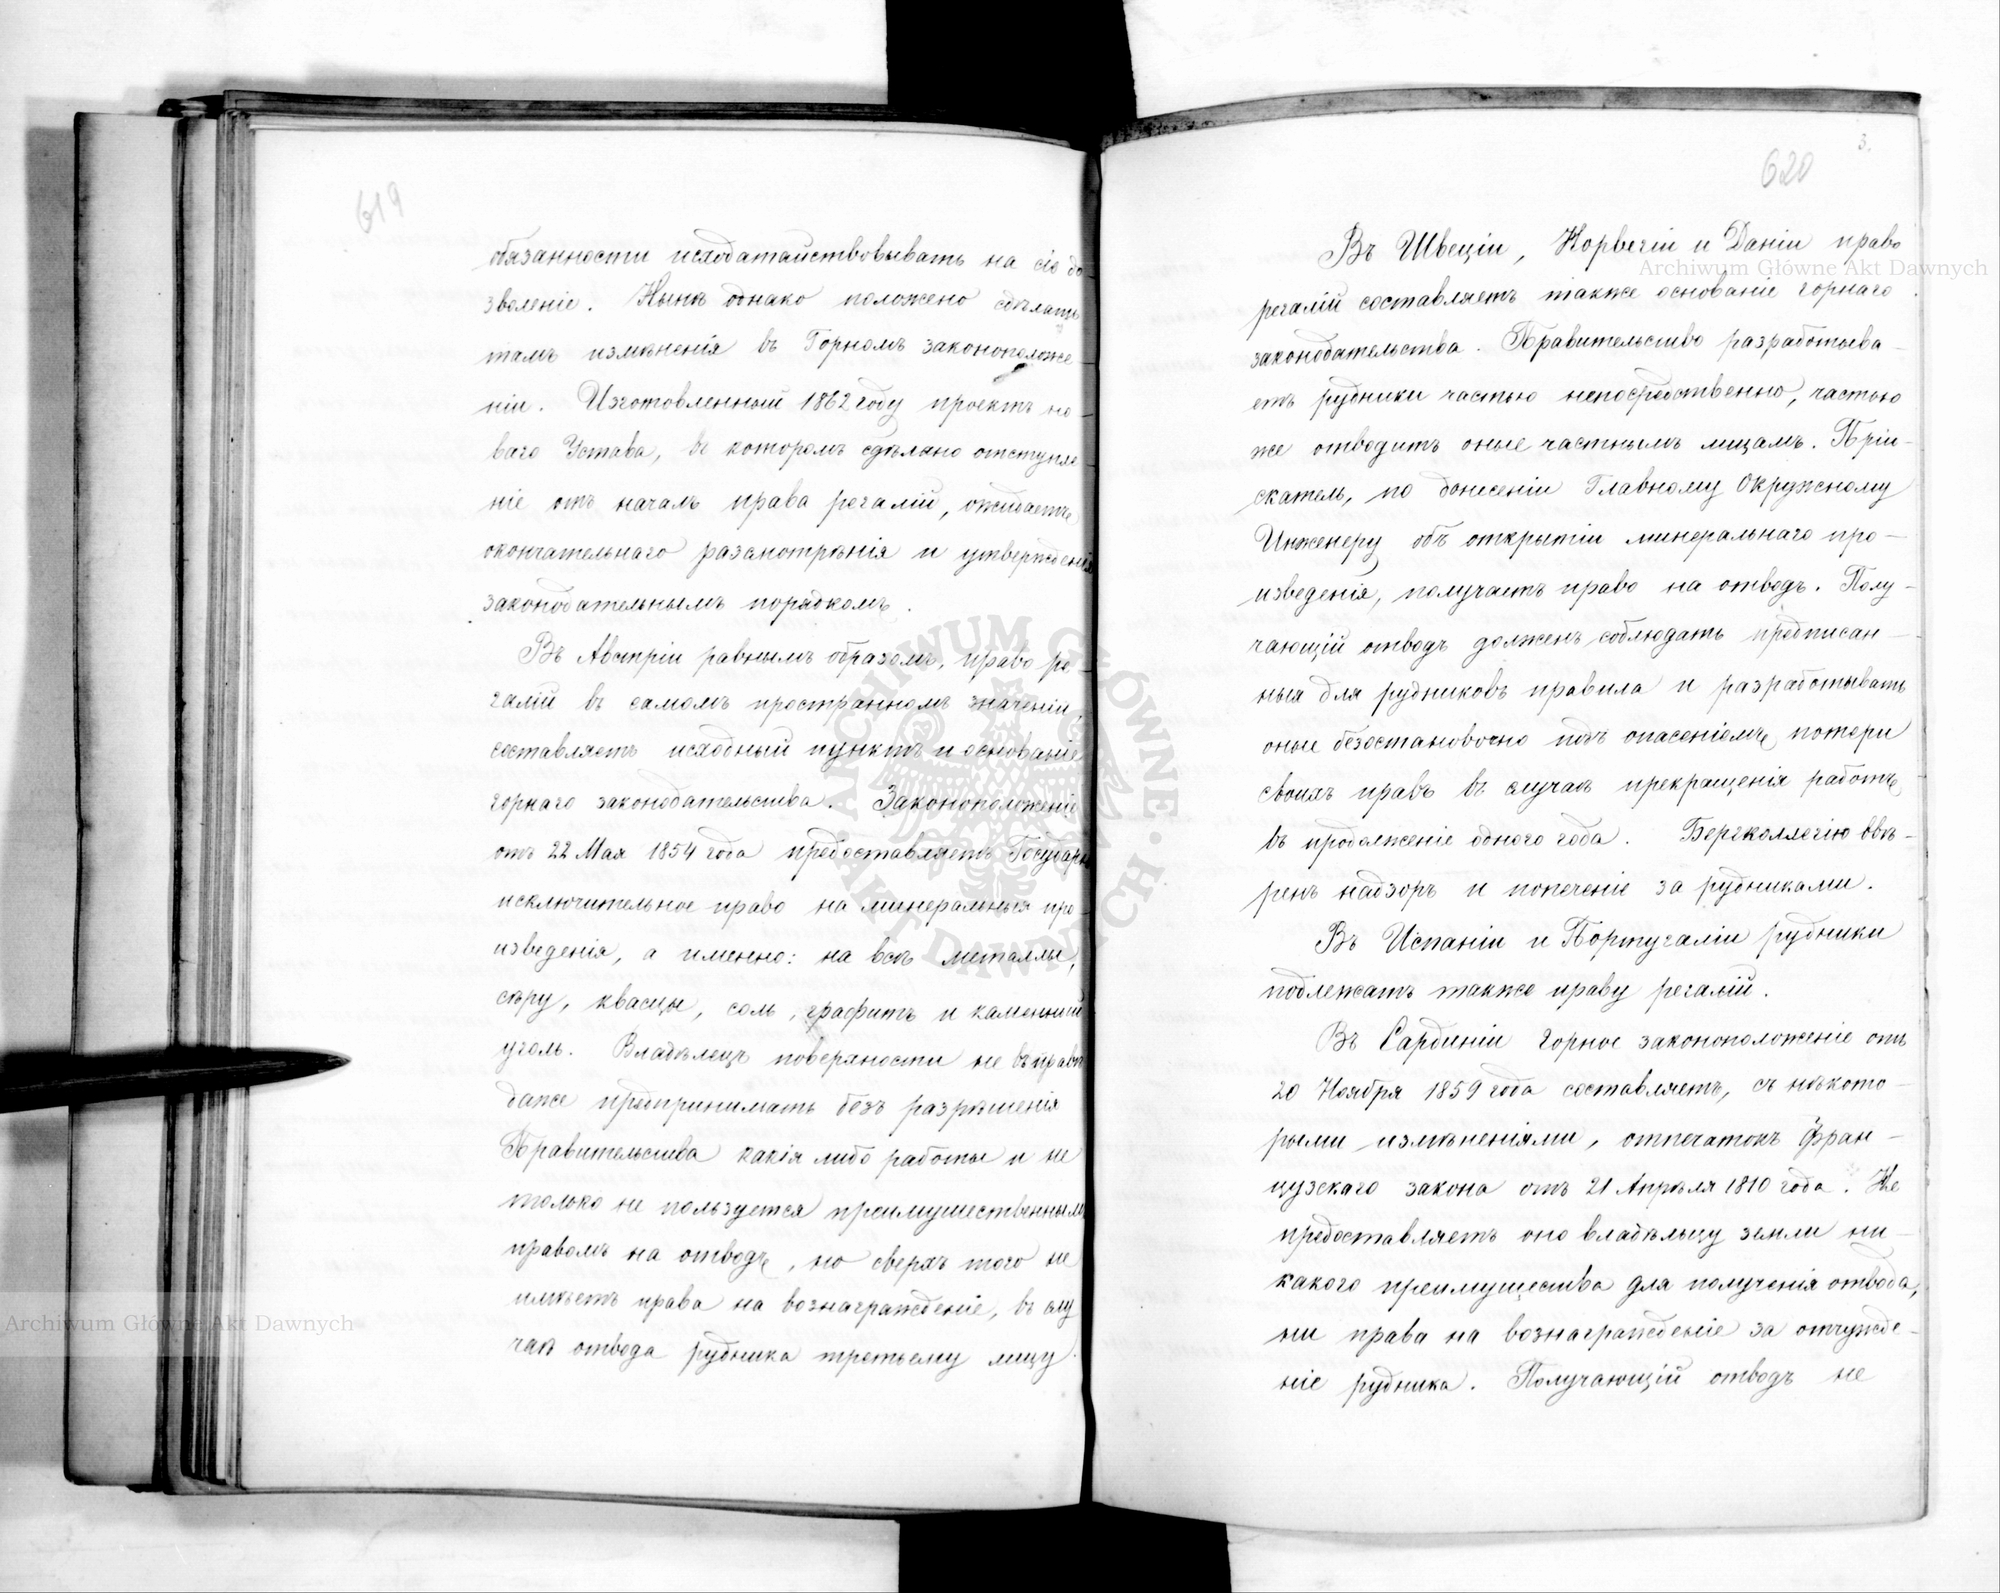 619
обязанности исходатайствовывать на сіе до
зволеніе. Нынѣ однако положено сдѣлать
тамъ измѣненія въ Горномъ законоположе
ніи. Изготовленный 1862 году проектъ но
ваго Устава, въ которомъ сдѣлано отступле
ніе отъ началъ права регалій, ожидаетъ
окончательнаго разсмотрѣнія и утвержденія
законодательнымъ порядкомъ.
Въ Австріи равнымъ образомъ, право ре
галій въ самомъ пространномъ значеніи,
составляетъ исходный пунктъ и основаніе
горнаго законодательства. Законоположеніе
отъ 22 Мая 1854 года предоставляетъ Государю
исключительное право на минеральныя про
изведенія, а именно: на всѣ металлы,
сѣру, квасцы, соль, графитъ и каменный
уголь. Владѣлецъ поверхности не въ правѣ
даже предпринимать безъ разрѣшенія
Правительства какія либо работы и не
только не пользуется преимущественнымъ
правомъ на отводъ, но сверхъ того не
имѣетъ права на вознагражденіе, въ слу
чаѣ отвода рудника третьему лицу.
3.
620
Въ Швеціи, Норвегіи и Даніи право
регалій составляетъ также основаніе горнаго
законодательства. Правительство разработыва-
етъ рудники частью непосредственно, частью
же отводитъ оные частнымъ лицамъ. Пріи-
скатель, по донесеніи Главному Окружному
Инженеру объ открытіи минеральнаго про-
изведенія, получаетъ право на отводъ. Полу-
чающій отводъ долженъ соблюдать предписан-
ныя для рудниковъ правила и разработывать
оные безостановочно подъ опасеніемъ потери
своихъ правъ въ случаѣ прекращенія работъ
въ продолженіе одного года. Бергколлегію ввѣ-
ренъ надзоръ и попеченіе за рудниками.
Въ Испаніи и Португаліи рудники
подлежатъ также праву регалій.
Въ Сардиніи горное законоположеніе отъ
20 Ноября 1859 года составляетъ, съ нѣкото-
рыми измѣненіями, отпечатокъ Фран-
цузскаго закона отъ 21 Апрѣля 1810 года. Не
предоставляетъ оно владѣльцу земли ни-
какого преимущества для полученія отвода,
ни права на вознагражденіе за отчужде-
ніе рудника. Получающій отводъ не
Archiwum Główne Akt Dawnych
Archiwum Główne Akt Dawnych
ARCHIWUM GŁÓWNE AKT DAWNYCH